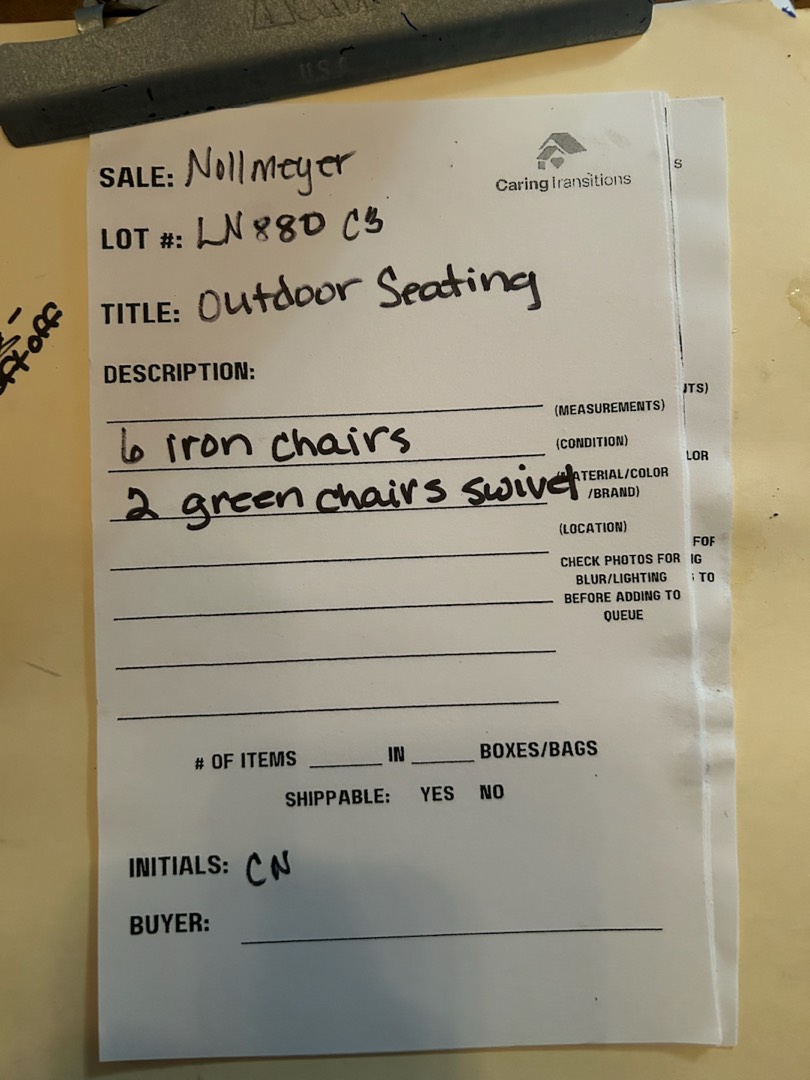 U.S.A
SALE: Nollmeyer
CaringTransitions
LOT #: LN880 C3
TITLE: Outdoor Seating
DESCRIPTION:
(MEASUREMENTS)
6 iron chairs (CONDITION)
2 green chairs swivel (MATERIAL/COLOR
/BRAND)
(LOCATION)
CHECK PHOTOS FOR
BLUR/LIGHTING
BEFORE ADDING TO
QUEUE
# OF ITEMS IN BOXES/BAGS
SHIPPABLE: YES NO
INITIALS: CN
BUYER:
S
NTS)
LOR
FOR
NG
S TO
off